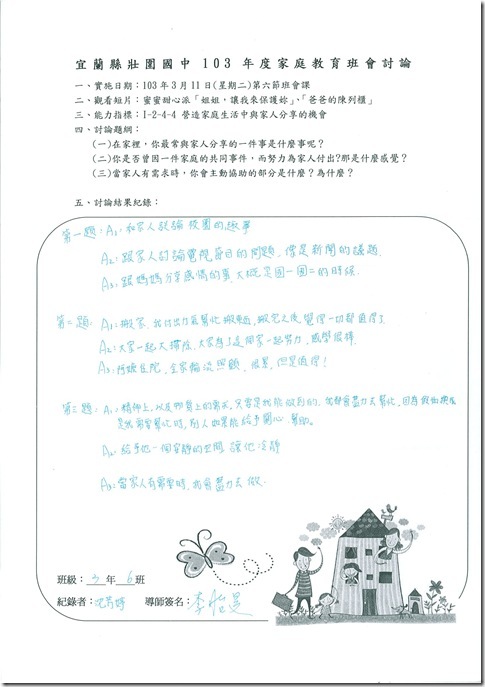 宜蘭縣壯圍國中 103 年度家庭教育班會討論
一、實施日期：103年3月11日(星期二)第六節班會課
二、觀看短片：蜜蜜甜心派「姐姐，讓我來保護妳」、「爸爸的陳列櫃」
三、能力指標：1-2-4-4 營造家庭生活中與家人分享的機會
四、討論題綱：
(一)在家裡，你最常與家人分享的一件事是什麼事呢？
(二)你是否曾因一件家庭的共同事件，而努力為家人付出?那是什麼感覺？
(三)當家人有需求時，你會主動協助的部分是什麼？為什麼？
五、討論結果紀錄：
第一題：A₁：和家人談論校園的趣事
A₂：跟家人討論電視節目的問題，像是新聞的議題.
A₃：跟媽媽分享感情的事，大概是國一國二的時候.
第二題：A₁：搬家，我付出力氣幫忙搬東西，搬完之後，覺得一切都值得了
A₂：大家一起大掃除，大家為了這個家一起努力，感覺很棒.
A₃：阿嬤住院，全家輪流照顧，很累，但是值得！
第三題：A₁：精神上，以及物質上的需求，只要是我能做到的，我都會盡力去幫忙，因為假如換成
是我需要幫忙時，別人如果能給予關心、幫助。
A₂：給予他一個安靜的空間，讓他冷靜
A₃：當家人有需要時，我會盡力去做.
班級：3 年 6 班
紀錄者：沈芳婷 導師簽名：李怡